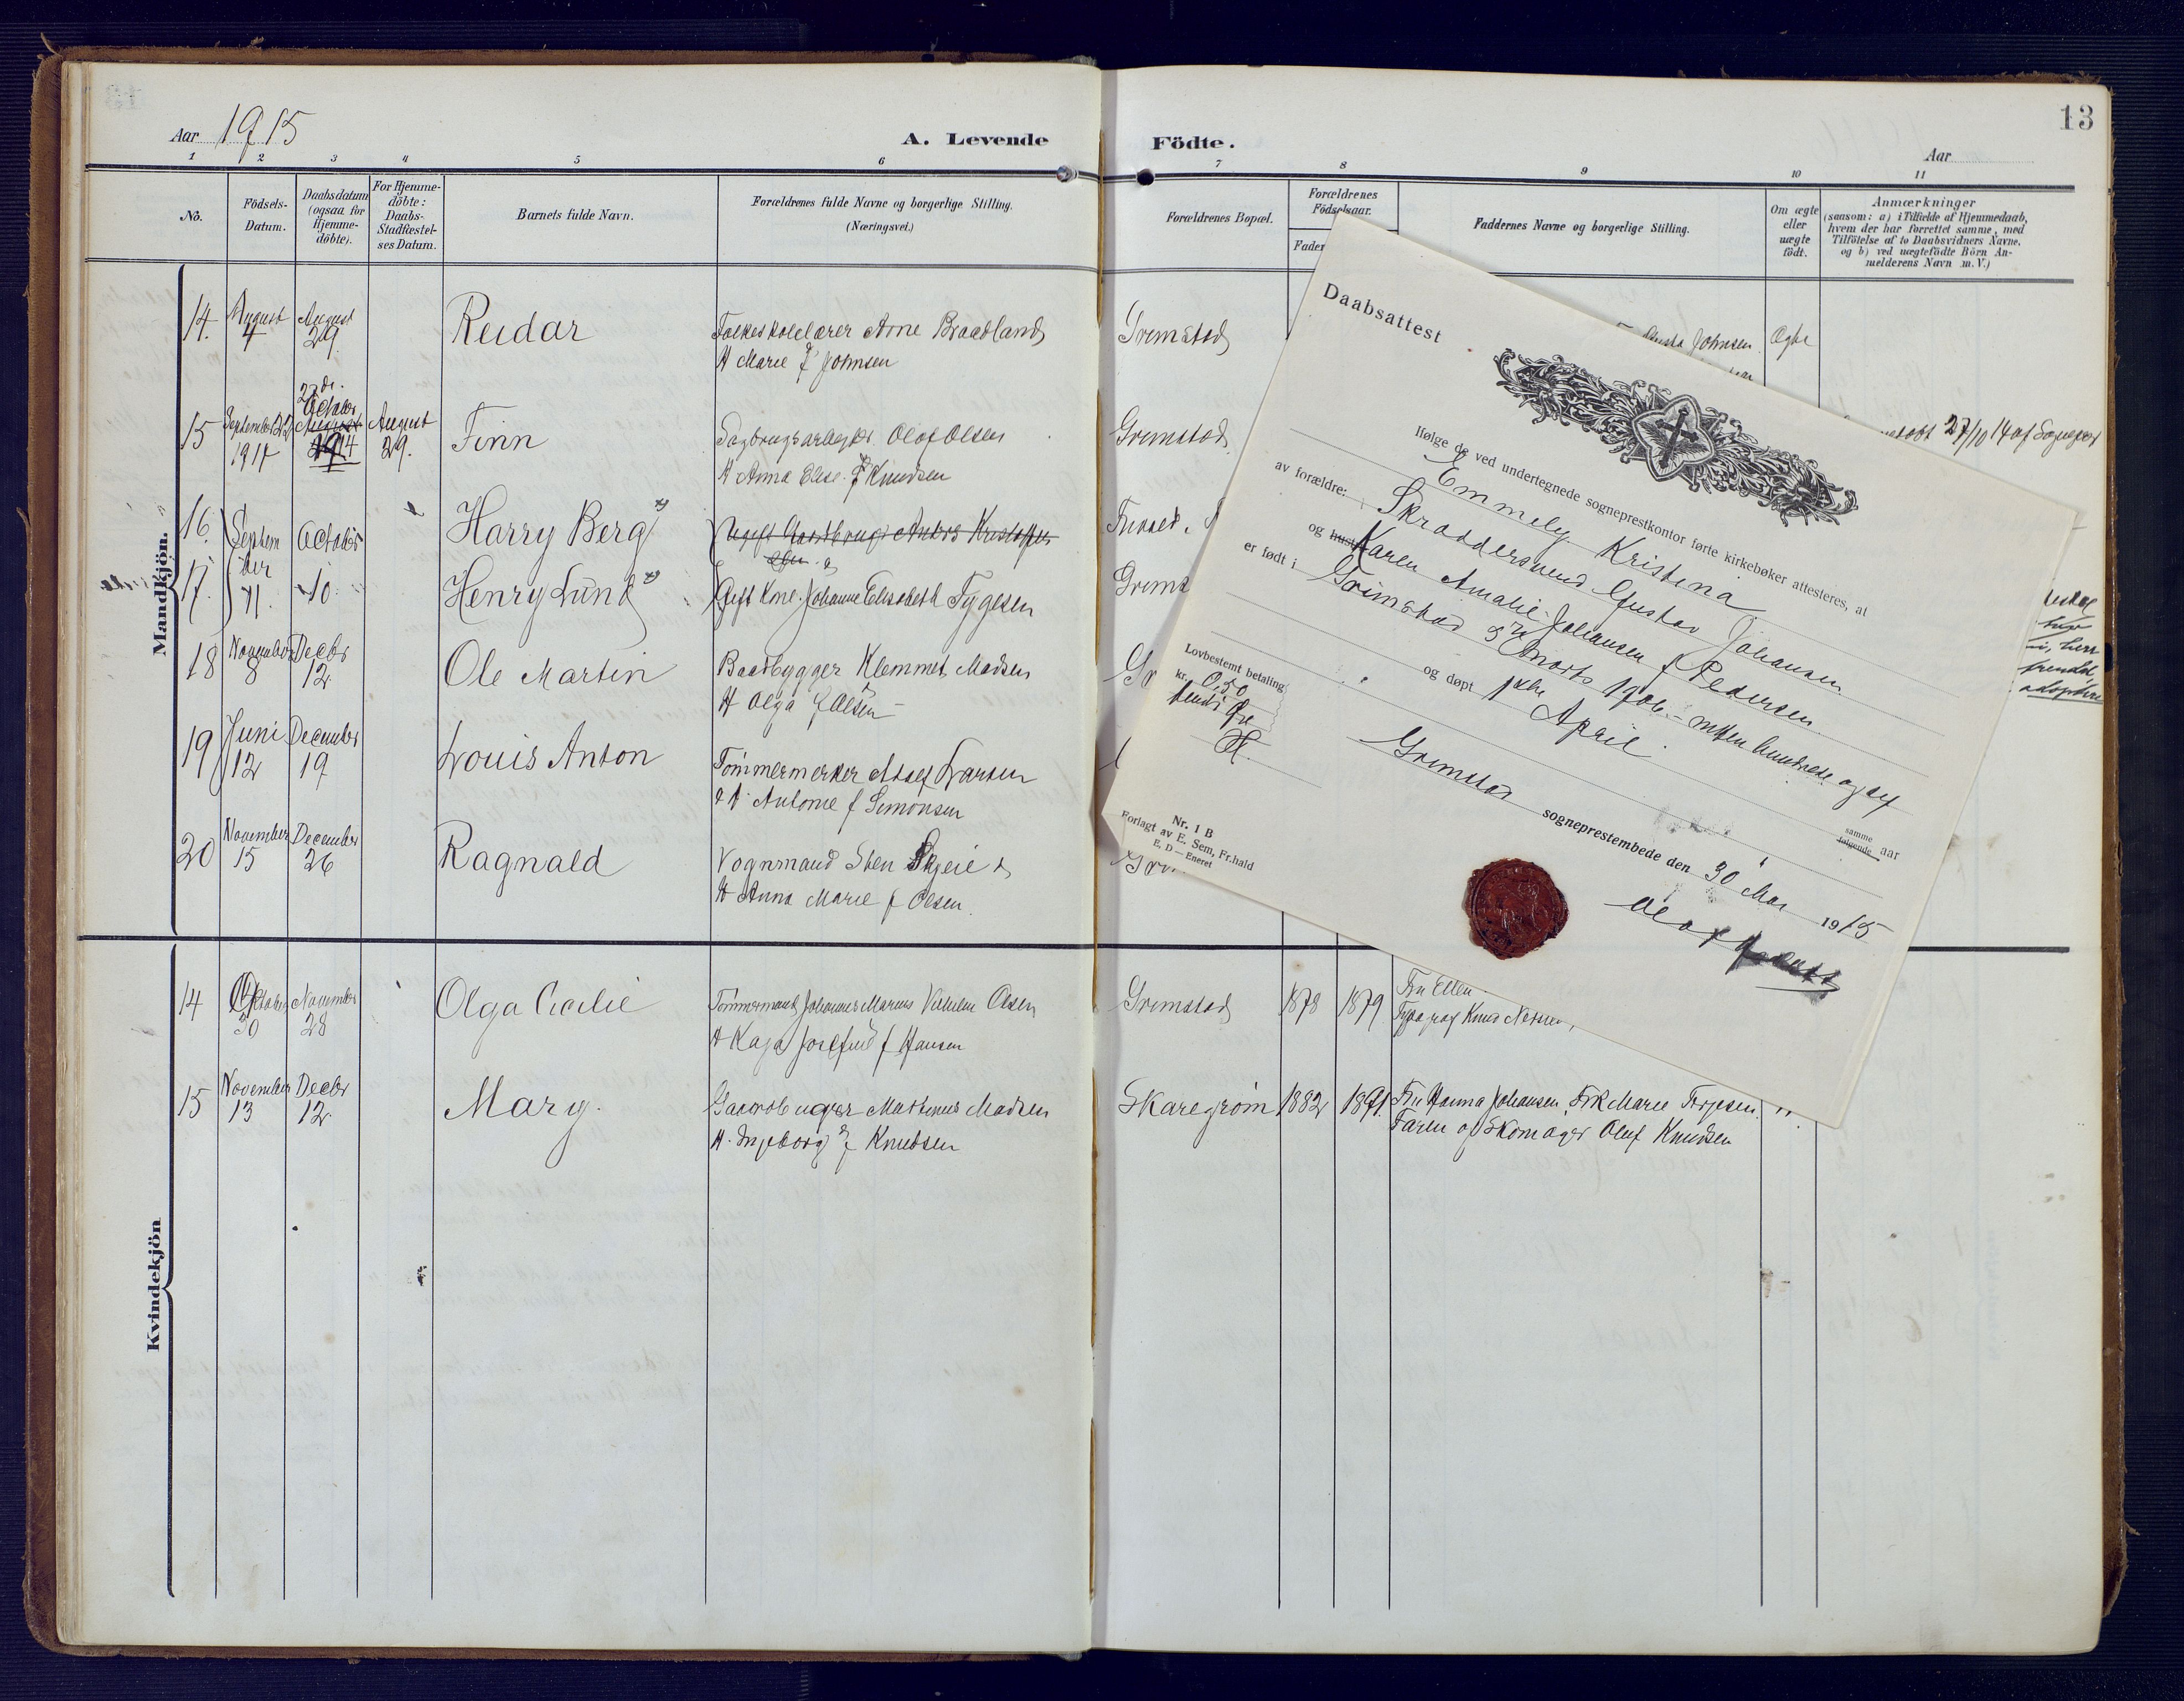 13
Aar 1915
A. Levende Födte.
Aar
1 2 3 4 5 6 7 8 9 10 11
No.
Födsels-
Datum.
Daabsdatum
(ogsaa for
Hjemme-
döbte).
For Hjemme-
döbte:
Daabs-
Stadfæstel-
ses Datum.
Barnets fulde Navn.
Forældrenes fulde Navne og borgerlige Stilling.
(Næringsvei.)
Forældrenes Bopæl.
Forældrenes
Födselsaar.
Fader
Faddernes Navne og borgerlige Stilling.
Om ægte
eller
uægte
födt.
Anmærkninger
(saasom: a) i Tilfælde af Hjemmedaab,
hvem der har forrettet samme, med
Tilföielse af to Daabsvidners Navne.
og b) ved uægtefödte Börn An-
melderens Navn m. V.)
Mandkjön.
14. August 4 August 29 Reidar
Folkeskolelærer Arne Braadland
H Marie f Johnsen
Grimstad
Johnsen Ægte
15 September 22 1914 27de October 14 August 29. Finn
Sagbrugsarbeider Olof Olsen
H Anna Elise f Knudsen
Grimstad
27/10 14 af Sognepr
16. Septem October Harry Berg
17. ber 11. 10. Henry Lund
Gift Kone Johanne Elisabeth Tygesen
18 November 8 Decbr 12 Ole Martin
Baadbygger Klemmet Madsen
H Olga f Olsen
19 Juni 12 December 19 Louis Anton
Tömmermerker Larsen
H Antonie f Simonsen
20 November 15 December 26 Ragnald
Vognmand Sten Skjeie &
H Anna Marie f Olsen.
Kvindekjön
14 October 30 November 28 Olga Cecilie
Tömmermand Johannes Marius Vilhelm Olsen
H Kaja Josefine f Hansen
Grimstad 1878 1879
Fru Ellen
Typograf Knud
15 November 13 Decbr 12 Mary.
Gaardbruger Mathinus Madsen
H. Ingeborg f Knudsen
Skaregrøm 1882 1891. Fru Hanna Johansen, Frk Marie Terjesen
Faren og Skomager Oluf Knudsen
Daabsattest
Ifølge de ved undertegnede sogneprestkontor førte kirkebøker attesteres, at
Emmely Kristina
av forældre: Skraddersvend Gustav Johansen
og hustru Karen Amalie Johansen f Pedersen
er født i Grimstad 3de Marts 1906 - nitten hundrede og sex
og døpt 1ste April
samme
følgende aar
Lovbestemt betaling
kr. 0,50
femti Øre
Grimstad sogneprestembede den 30 Mai 1915
Nr. 1 B
Forlagt av E. Sem, Fr.hald
E. D — Eneret